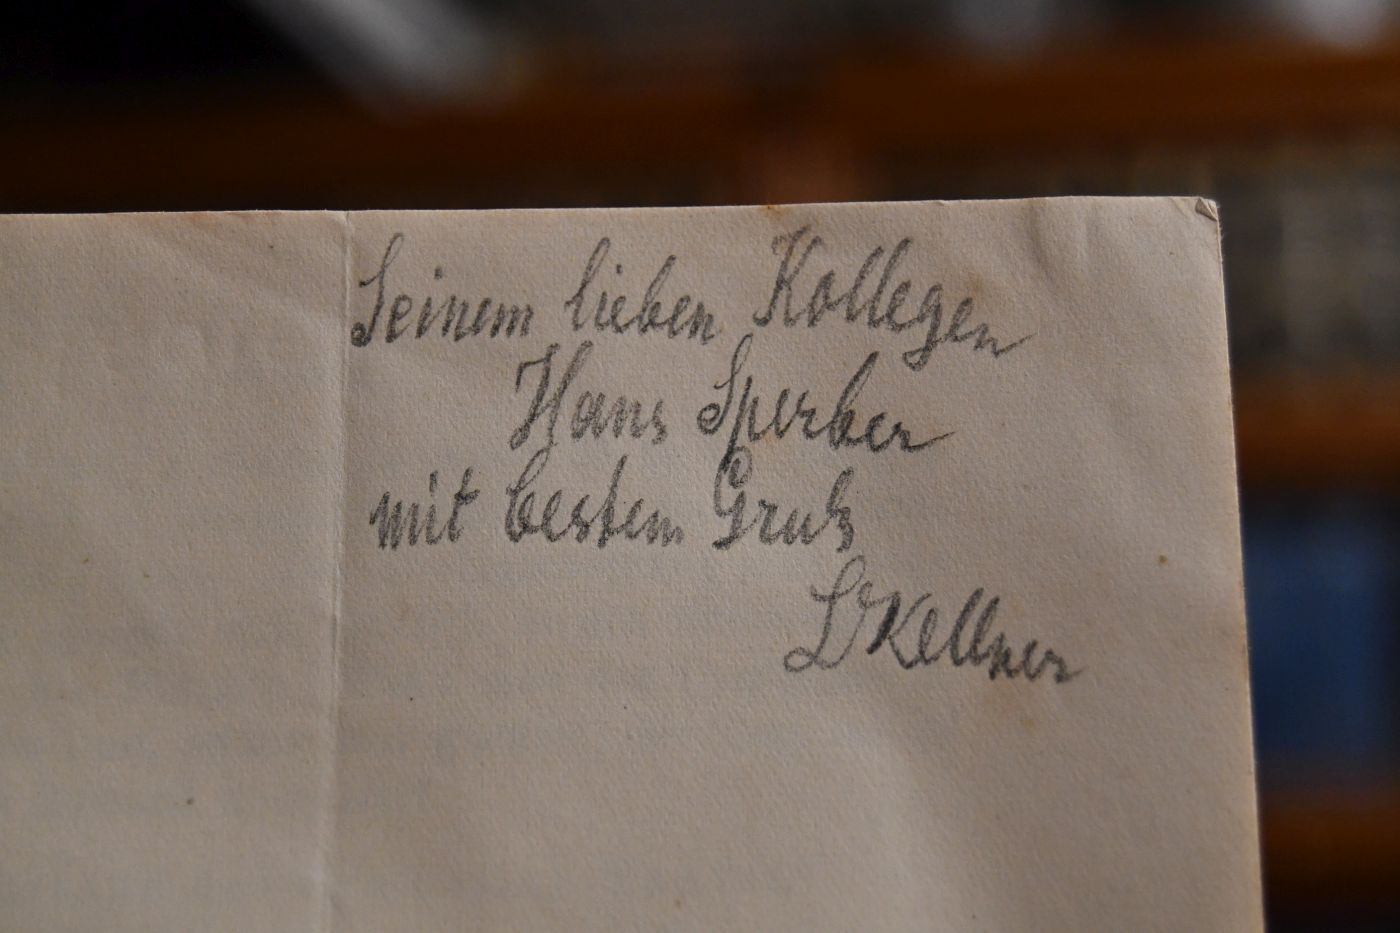 Seinem lieben Kollegen
Hans Sperber
mit bestem Gruß
LKellner